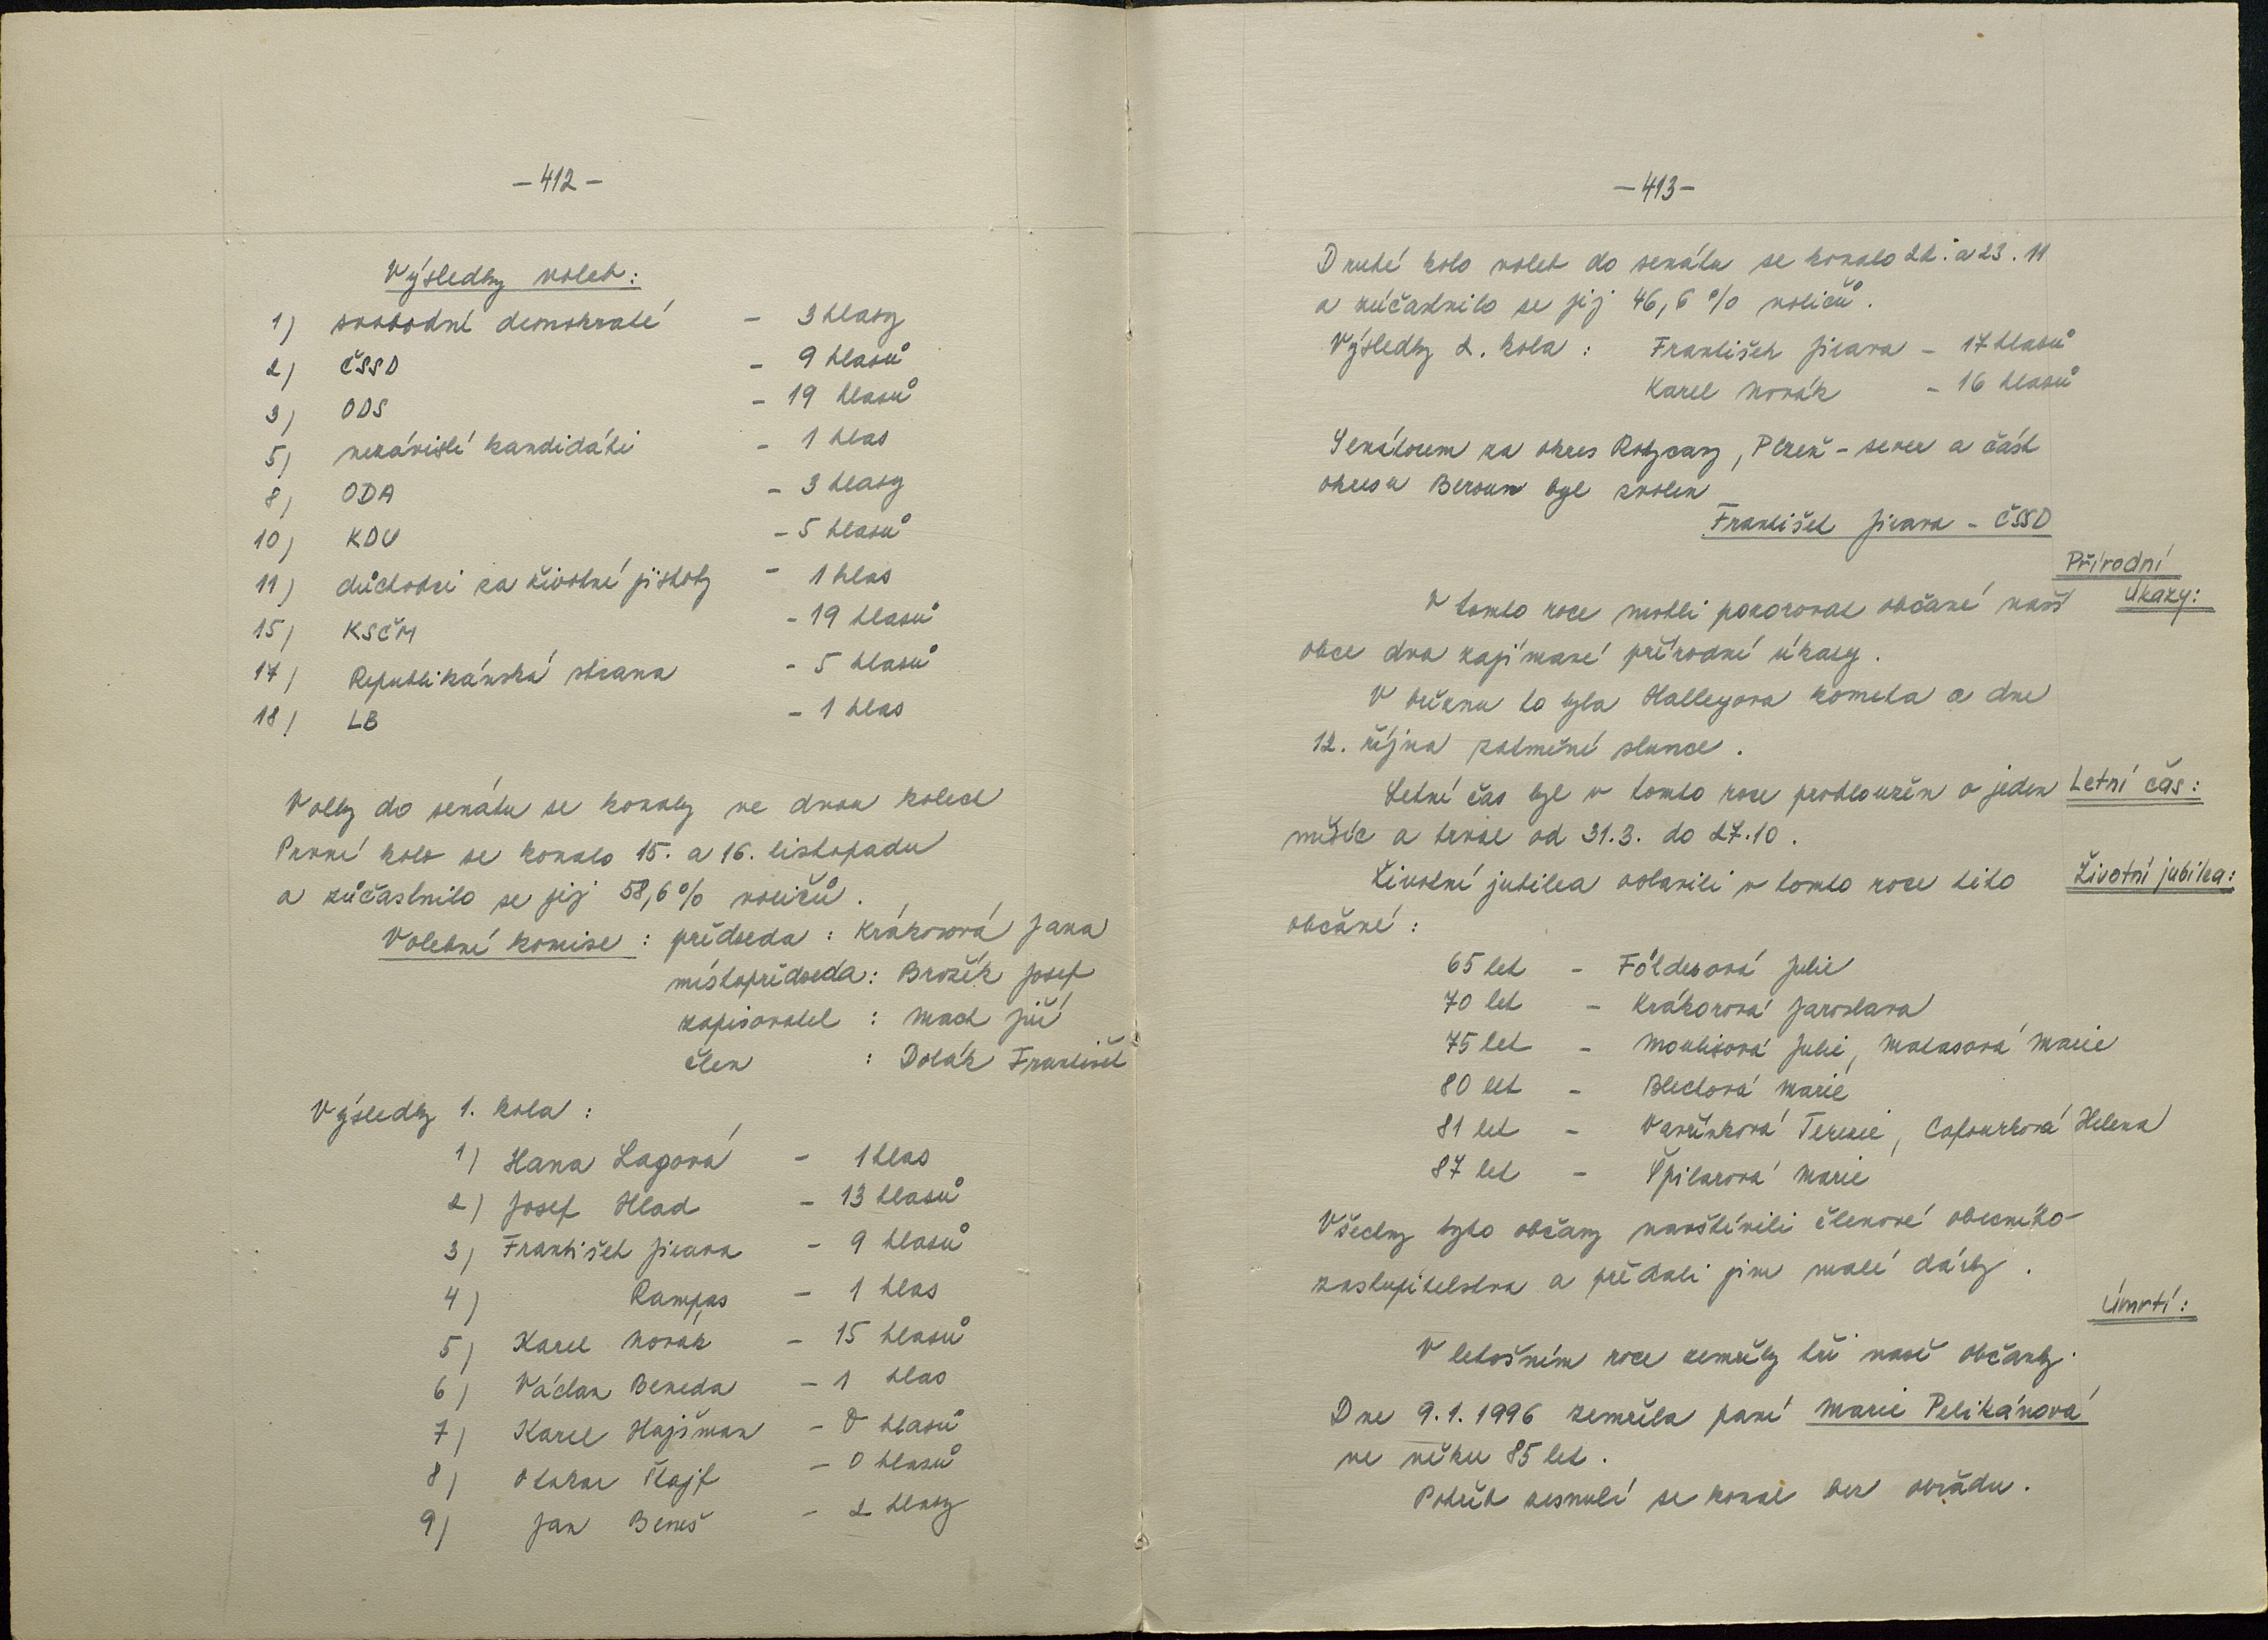 – 412 –
Výsledky voleb:
1) svobodní demokraté – 3 hlasy
2) ČSSD – 9 hlasů
3) ODS – 19 hlasů
5) nezávislí kandidáti – 1 hlas
8) ODA – 3 hlasy
10) KDU – 5 hlasů
11) důchodci za životné jistoty – 1 hlas
15) KSČM – 19 hlasů
17) Republikánská strana – 5 hlasů
18) LB – 1 hlas
Volby do senátu se konaly ve dvou kolech
První kolo se konalo 15. a 16. listopadu
a zůčastnilo se jij 58,6 % voličů.
Volební komise: předseda: Krákorová Jana
místopředseda: Brožík Josef
zapisovatel : Mach Jiří
člen : Dolák František
Výsledky 1. kola :
1) Hana Lagová – 1 hlas
2) Josef Hlad – 13 hlasů
3) František Jirava – 9 hlasů
4) Rampas – 1 hlas
5) Karel Novák – 15 hlasů
6) Václav Beneda – 1 hlas
7) Karel Hajšman – 0 hlasů
8) Otakar Štajf – 0 hlasů
9) Jan Beneš – 2 hlasy
– 413 –
Druhé kolo voleb do senátu se konalo 22. a 23. 11
a zúčastnilo se jij 46,6 % voličů.
Výsledky 2. kola : František Jirava – 17 hlasů
Karel Novák – 16 hlasů
Senátorem za okres Rokycany, Plzeň – sever a část
okresu Beroun byl zvolen
František Jirava – ČSSD
Přírodní
úkazy:
V tomto roce mohli pozorovat občané naší
obce dva zajímavé přírodní úkazy.
V březnu to byla Halleyova kometa a dne
12. října zatmění slunce.
Letní čas byl v tomto roce prodloužen o jeden Letní čas:
měsíc a trval od 31.3. do 27.10.
Životní jubilea oslavili v tomto roce tito Životní jubilea:
občané :
65 let – Földesová Julie
70 let – Krákorová Jaroslava
75 let – Moulisová Julie, Matasová Marie
80 let – Blechová Marie
81 let – Vavřinková Terezie, Cafourková Helena
87 let – Špilarová Marie
Všechny tyto občany navštívili členové obecního
zastupitelstva a předali jim malé dárky.
Úmrtí:
V letošním roce zemřely tři naše občanky.
Dne 9.1.1996 zemřela paní Marie Pelikánová
ve věku 85 let.
Pohřeb zesnulé se konal bez obřadu.